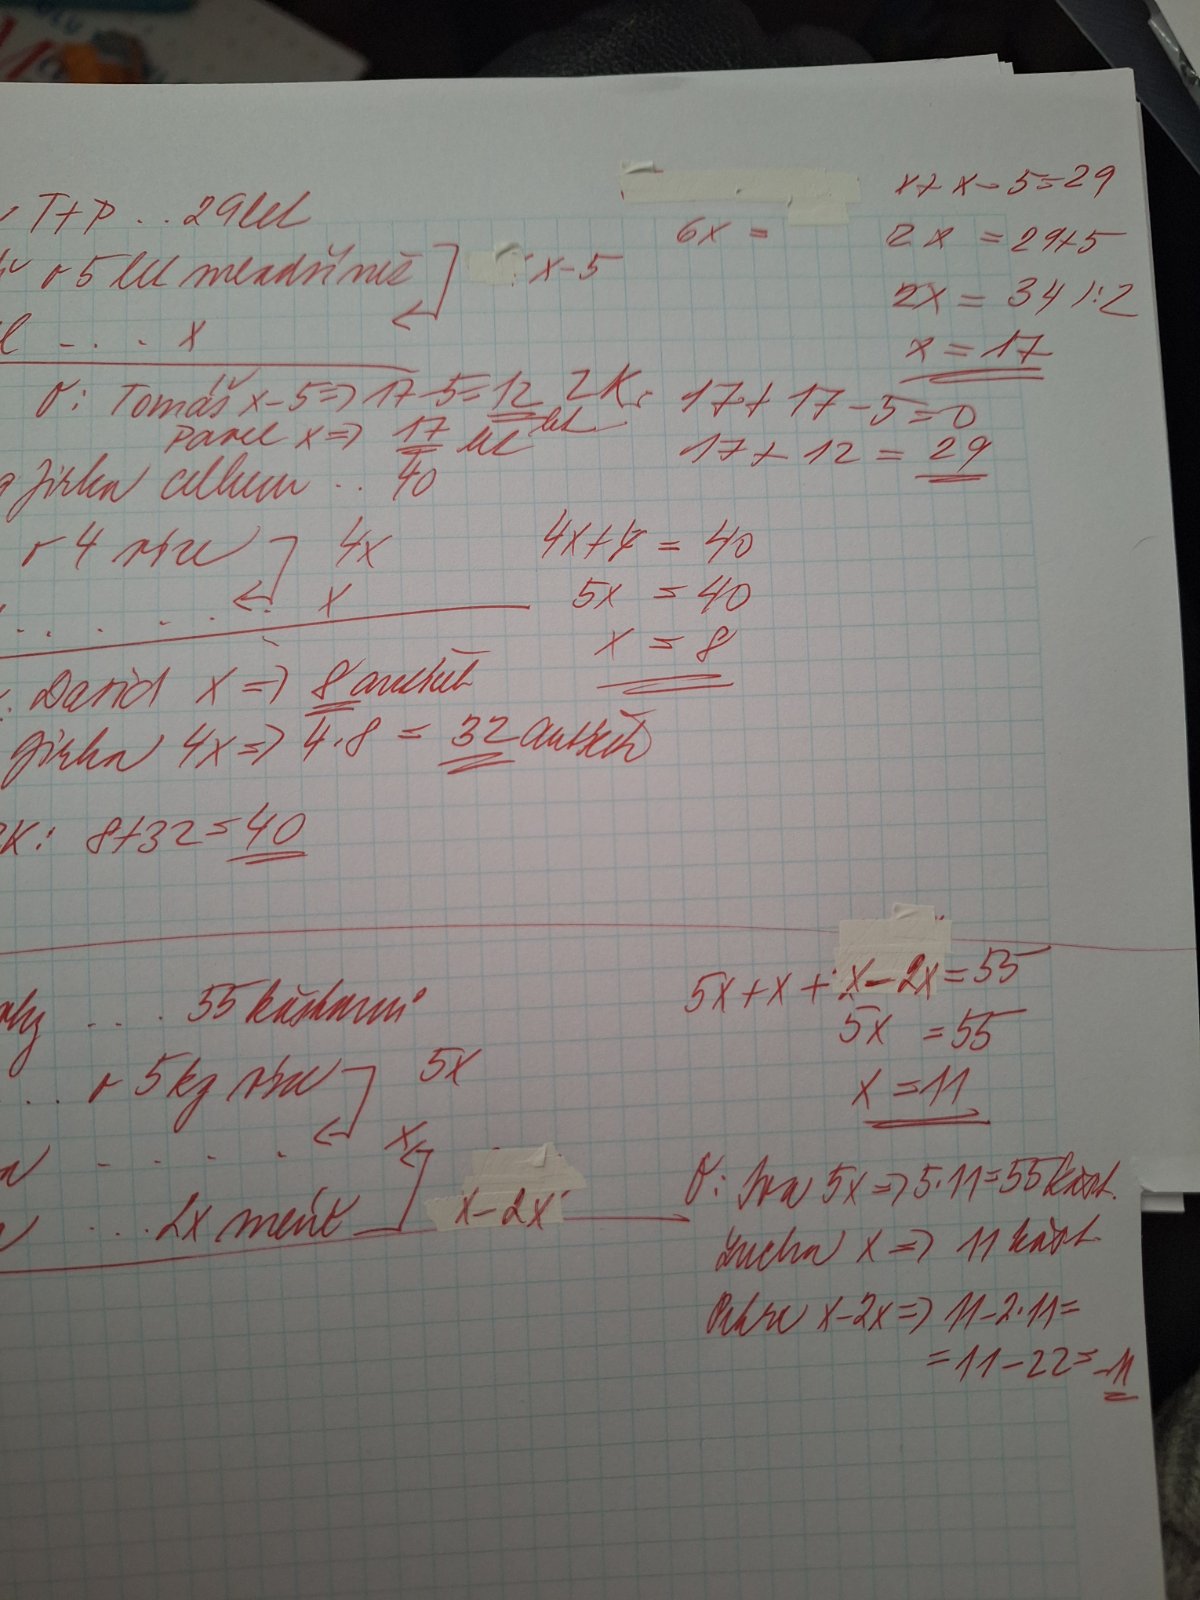 T+P .. 29 let
x + x - 5 = 29
6x =
2x = 29+5
o 5 let mladší než
x-5
2x = 34 /:2
... x
x = 17
O: Tomáš x-5 => 17-5 = 12 let
ZK: 17+17-5=0
Pavel x => 17 let
17+12 = 29
Jirka celkem .. 40
o 4 více
4x
4x+x = 40
x
5x = 40
x = 8
David x => 8 autíček
Jirka 4x => 4.8 = 32 autíček
ZK: 8+32=40
5x+x+x-2x=55
.... 55 kaštanů
5x = 55
... o 5kg více
5x
x = 11
x
... 2x méně
x-2x
O: Iva 5x => 5.11=55 kašt.
Lucka x => 11 kašt.
Petra x-2x => 11-2.11=
=11-22=-11